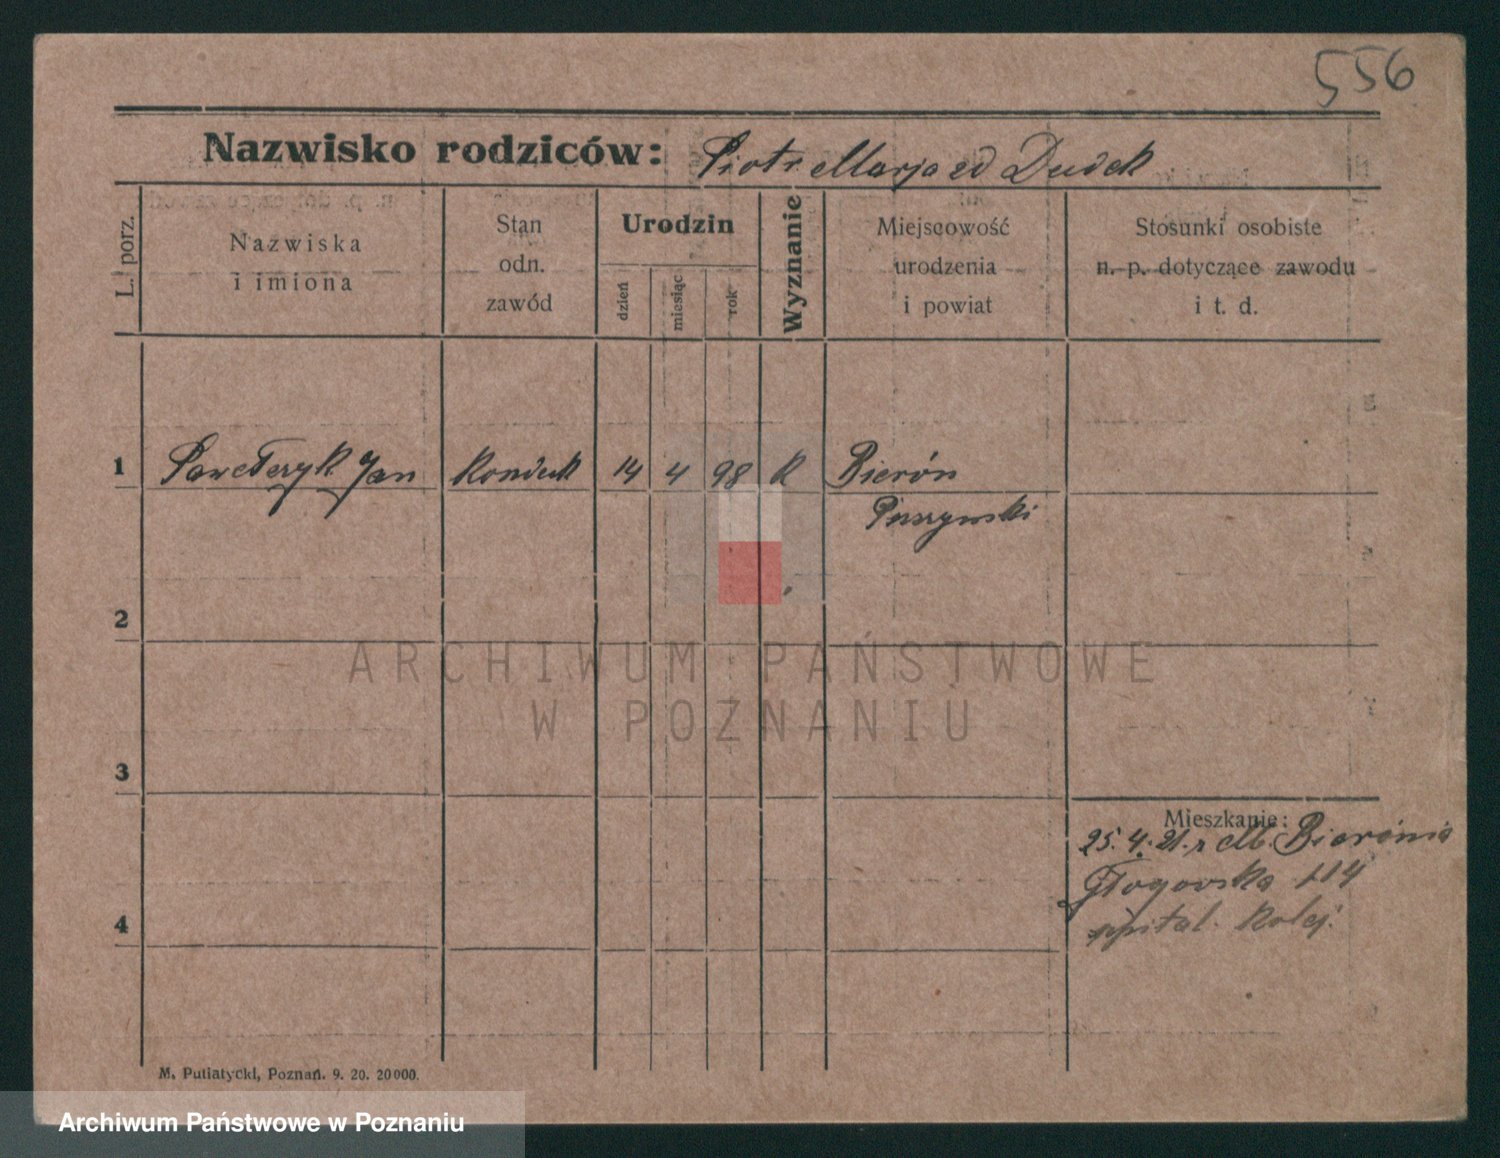 556
Nazwisko rodziców: Piotr Marja zd Dudek
L. porz.
Nazwiska
i imiona
Stan
odn.
zawód
Urodzin
dzień
miesiąc
rok
Wyznanie
Miejscowość
urodzenia
i powiat
Stosunki osobiste
n. p. dotyczące zawodu
i t. d.
1 Pawełczyk Jan 14 4 98 K Bieróń
Pszczyński
2
3
4
Mieszkanie:
25. 4. 21. z M. Bierónia
Głogowska 114
szpital. Kolej.
M. Putiatycki, Poznań. 9. 20. 20000.
ARCHIWUM PAŃSTWOWE
W POZNANIU
Archiwum Państwowe w Poznaniu